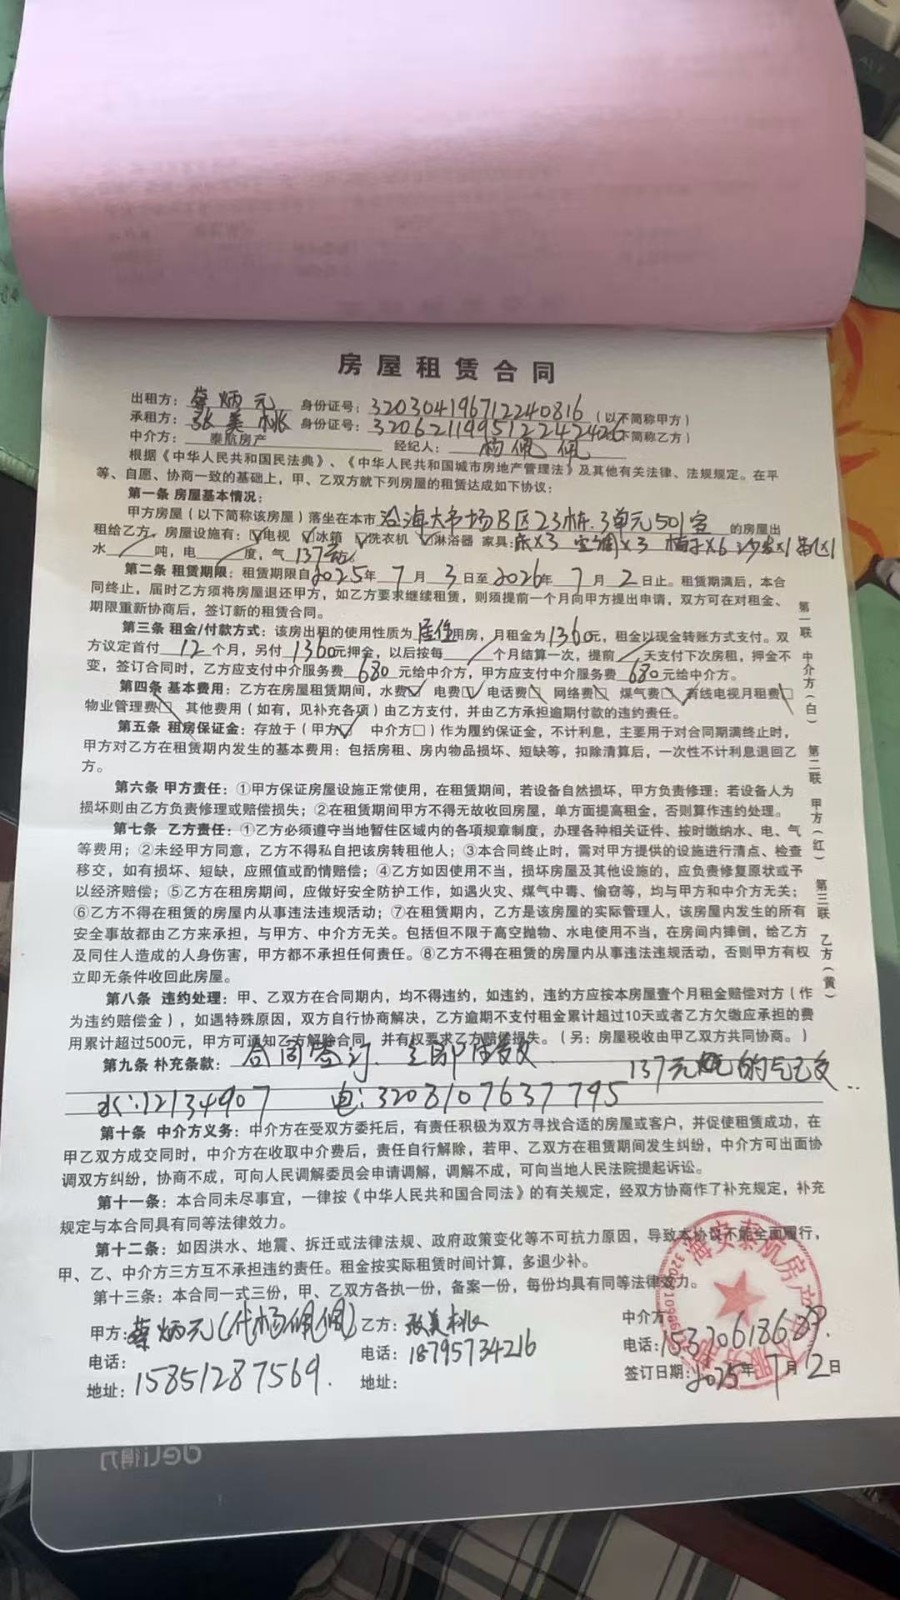 房屋租赁合同
出租方：蔡炳元 身份证号：320304196712240816（以下简称甲方）
承租方：张美桃 身份证号：（以下简称乙方）
中介方：泰航房产 经纪人：杨佩佩
根据《中华人民共和国民法典》、《中华人民共和国城市房地产管理法》及其他有关法律、法规规定。在平
等、自愿、协商一致的基础上，甲、乙双方就下列房屋的租赁达成如下协议：
第一条 房屋基本情况：
甲方房屋（以下简称该房屋）落坐在本市沿海大市场B区23栋.3单元501室的房屋出
租给乙方。房屋设施有：☑电视 ☑冰箱 ☑洗衣机 ☑淋浴器 家具：床×3 空调×3 椅子×6 沙发×1
水 吨，电 度，气137
第二条 租赁期限：租赁期限自2025年7月3日至2026年7月2日止。租赁期满后，本合
同终止，届时乙方须将房屋退还甲方，如乙方要求继续租赁，则须提前一个月向甲方提出申请，双方可在对租金、
期限重新协商后，签订新的租赁合同。
第三条 租金/付款方式：该房出租的使用性质为居住用房，月租金为1360元，租金以现金转账方式支付。双
方议定首付12个月，另付1360元押金，以后按每 个月结算一次，提前 天支付下次房租，押金不
变，签订合同时，乙方应支付中介服务费680元给中介方，甲方应支付中介服务费680元给中介方。
第四条 基本费用：乙方在房屋租赁期间，水费☑ 电费☑ 电话费□ 网络费□ 煤气费□ 有线电视月租费□
物业管理费□ 其他费用（如有，见补充各项）由乙方支付，并由乙方承担逾期付款的违约责任。
第五条 租房保证金：存放于（甲方☑ 中介方□）作为履约保证金，不计利息，主要用于对合同期满终止时，
甲方对乙方在租赁期内发生的基本费用：包括房租、房内物品损坏、短缺等，扣除清算后，一次性不计利息退回乙
方。
第六条 甲方责任：①甲方保证房屋设施正常使用，在租赁期间，若设备自然损坏，甲方负责修理；若设备人为
损坏则由乙方负责修理或赔偿损失；②在租赁期间甲方不得无故收回房屋，单方面提高租金，否则算作违约处理。
第七条 乙方责任：①乙方必须遵守当地暂住区域内的各项规章制度，办理各种相关证件、按时缴纳水、电、气
等费用；②未经甲方同意，乙方不得私自把该房转租他人；③本合同终止时，需对甲方提供的设施进行清点、检查
移交，如有损坏、短缺，应照值或酌情赔偿；④乙方如因使用不当，损坏房屋及其他设施的，应负责修复原状或予
以经济赔偿；⑤乙方在租房期间，应做好安全防护工作，如遇火灾、煤气中毒、偷窃等，均与甲方和中介方无关；
⑥乙方不得在租赁的房屋内从事违法违规活动；⑦在租赁期内，乙方是该房屋的实际管理人，该房屋内发生的所有
安全事故都由乙方来承担，与甲方、中介方无关。包括但不限于高空抛物、水电使用不当，在房间内摔倒，给乙方
及同住人造成的人身伤害，甲方都不承担任何责任。⑧乙方不得在租赁的房屋内从事违法违规活动，否则甲方有权
立即无条件收回此房屋。
第八条 违约处理：甲、乙双方在合同期内，均不得违约，如违约，违约方应按本房屋壹个月租金赔偿对方（作
为违约赔偿金），如遇特殊原因，双方自行协商解决，乙方逾期不支付租金累计超过10天或者乙方欠缴应承担的费
用累计超过500元，甲方可通知乙方解除合同，并有权要求乙方赔偿损失。（另：房屋税收由甲乙双方共同协商。）
第九条 补充条款：合同签订
137元 的气已交
水：12134907 电：3208107637795
第十条 中介方义务：中介方在受双方委托后，有责任积极为双方寻找合适的房屋或客户，并促使租赁成功，在
甲乙双方成交同时，中介方在收取中介费后，责任自行解除，若甲、乙双方在租赁期间发生纠纷，中介方可出面协
调双方纠纷，协商不成，可向人民调解委员会申请调解，调解不成，可向当地人民法院提起诉讼。
第十一条：本合同未尽事宜，一律按《中华人民共和国合同法》的有关规定，经双方协商作了补充规定，补充
规定与本合同具有同等法律效力。
第十二条：如因洪水、地震、拆迁或法律法规、政府政策变化等不可抗力原因，导致本协议不能全面履行，
甲、乙、中介方三方互不承担违约责任。租金按实际租赁时间计算，多退少补。
第十三条：本合同一式三份，甲、乙双方各执一份，备案一份，每份均具有同等法律效力。
甲方：蔡炳元（代杨佩佩） 乙方：张美桃 中介方
电话：15851287569. 电话：18795734216 电话：
地址： 地址： 签订日期：2025年7月2日
第一联 中介方（白） 第二联 甲方（红） 第三联 乙方（黄）
海安泰航房产
deli得力